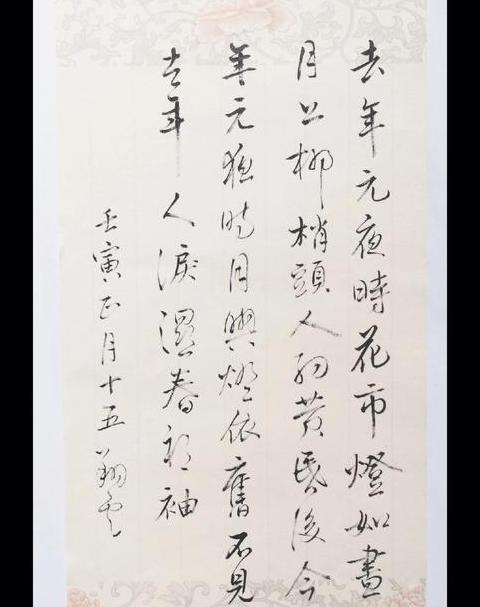 去年元夜時花市燈如晝
月上柳梢頭人約黃昏後今
年元夜時月與燈依舊不見
去年人淚濕春衫袖
壬寅正月十五翔雲